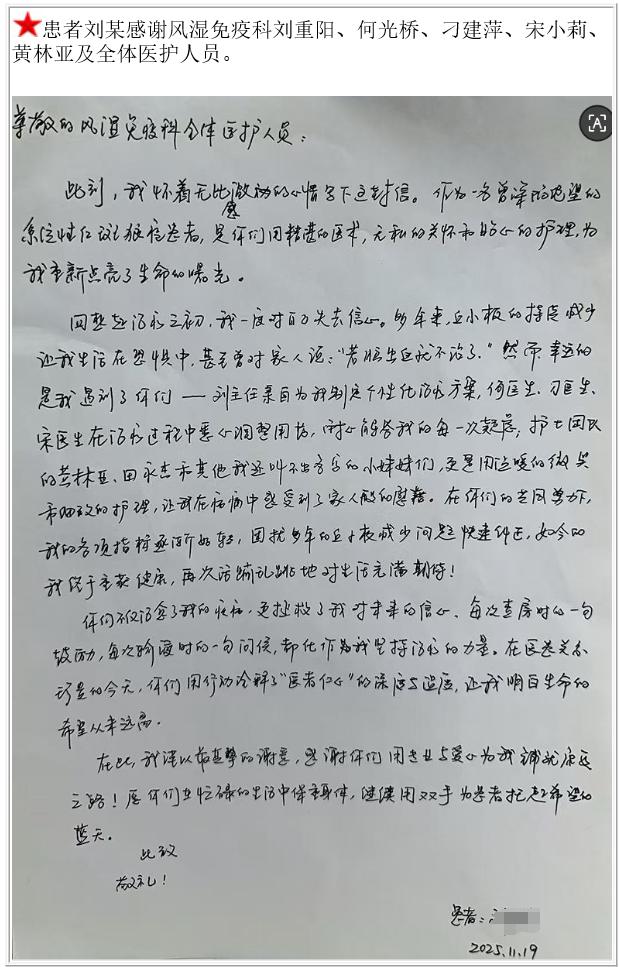 ★患者刘某感谢风湿免疫科刘重阳、何光桥、刁建萍、宋小莉、
黄林亚及全体医护人员。
尊敬的风湿免疫科全体医护人员：
此刻，我怀着无比感激的心情写下这封信。作为一名曾深陷绝望的
系统性红斑狼疮患者，是你们用精湛的医术，无私的关怀和贴心的护理，为
我重新点亮了生命的曙光。
回想起治疗之初，我一度对自己失去信心。多年来，血小板的持续减少
让我生活在恐惧中，甚至曾对家人说："若临出血就不治了。"然而幸运的
是我遇到了你们——刘主任亲自为我制定个性化治疗方案，何医生、刁医生、
宋医生在治疗过程中悉心调整用药，耐心解答我的每一次疑虑；护士团队
的黄林亚、田永杰和其他我还叫不出名字的小妹妹们，更是用温暖的微笑
和细致的护理，让我在病痛中感受到了家人般的慰藉。在你们的共同努力下，
我的各项指标逐渐好转，困扰多年的血小板减少问题快速纠正，如今的
我终于重获健康，再次活蹦乱跳地对生活充满期待！
你们不仅治愈了我的疾病，更拯救了我对未来的信心、每次查房时的一句
鼓励，每次输液时的一句问候，都化作为我坚持治疗的力量。在医患关系
珍重的今天，你们用行动诠释了"医者仁心"的深度与温度，让我明白生命的
希望从未远离。
在此，我谨以最真挚的谢意，感谢你们用专业与爱心为我铺就康复
之路！愿你们在忙碌的生活中保重身体，继续用双手为患者托起希望的
蓝天。
此致
敬礼！
患者：
2025.11.19